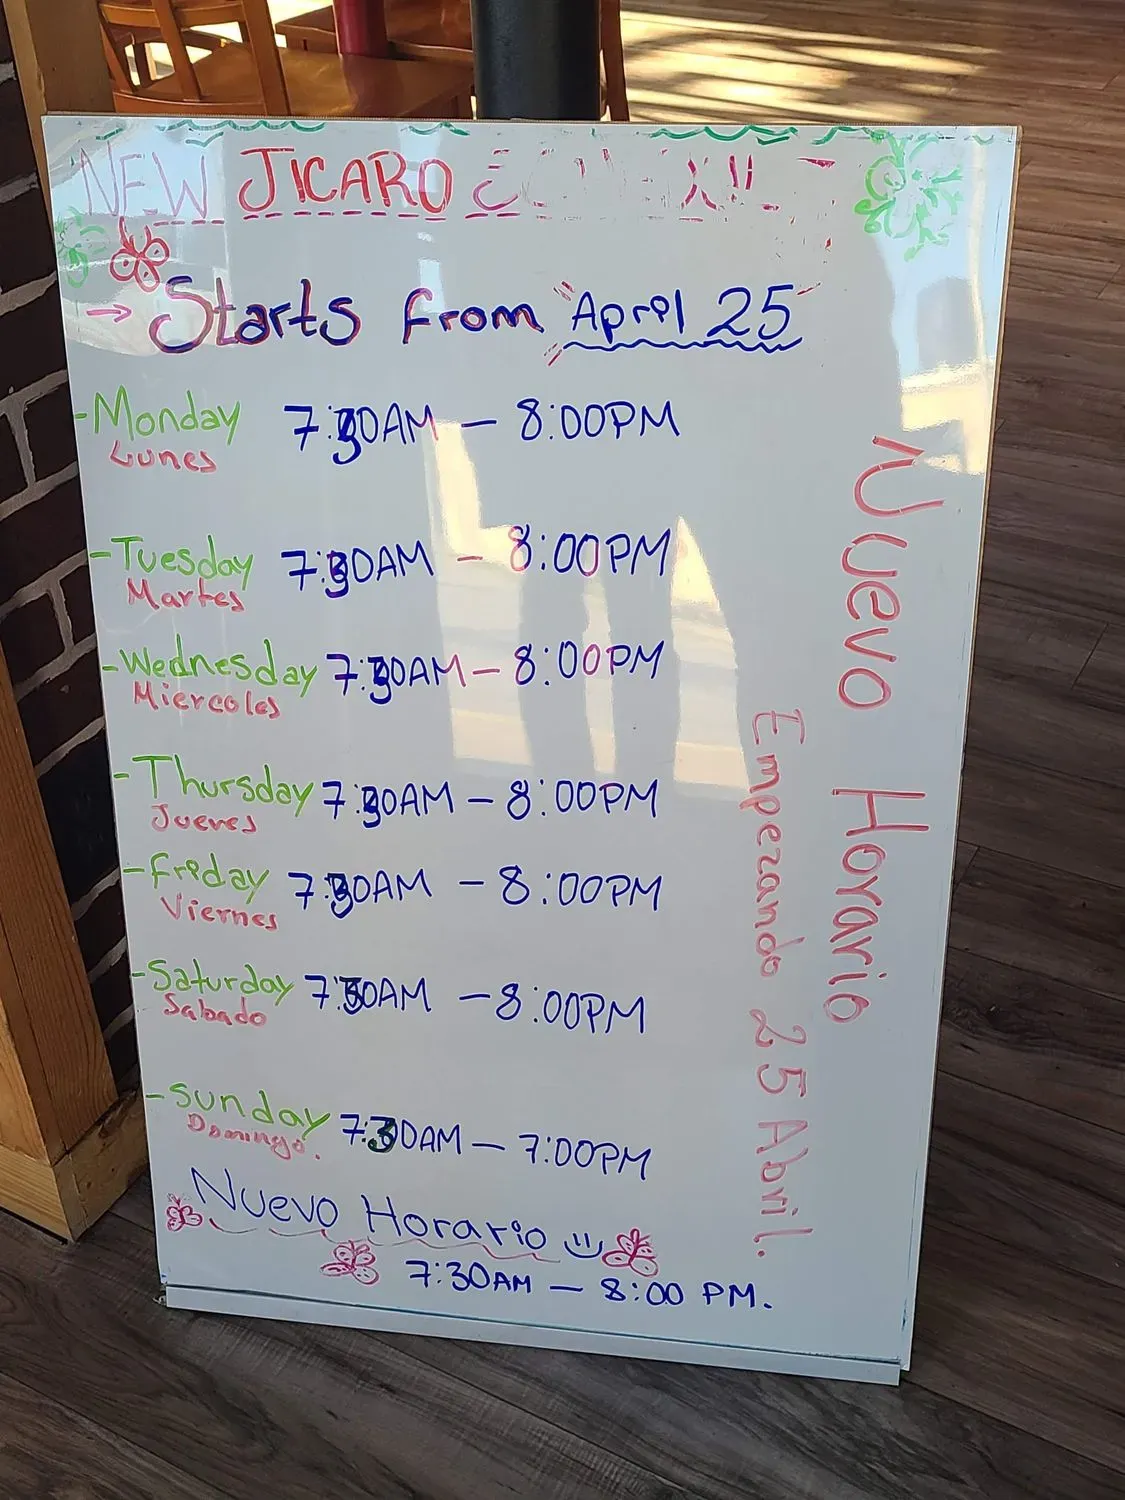 NEW JICARO
→ Starts from April 25
-Monday 7:30AM — 8:00PM
Lunes
-Tuesday 7:30AM - 8:00PM
Martes
-Wednesday 7:30AM - 8:00PM
Miercoles
-Thursday 7:30AM - 8:00PM
Jueves
-Friday 7:30AM - 8:00PM
Viernes
-Saturday 7:30AM - 8:00PM
Sabado
-Sunday 7:30AM - 7:00PM
Domingo.
Nuevo Horario
7:30AM — 8:00 PM.
Nuevo Horario
Empezando 25 Abril.